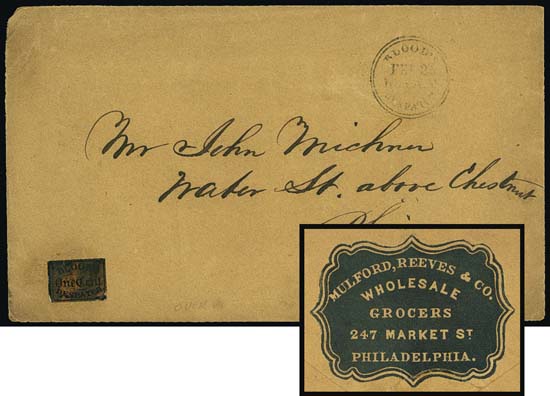 BLOOD'S
FEB 22
DESPATCH
Mr John Michner
Water St. above Chestnut
BLOOD'S
One Cent
DESPATCH
MULFORD, REEVES & CO.
WHOLESALE
GROCERS
247 MARKET ST
PHILADELPHIA.